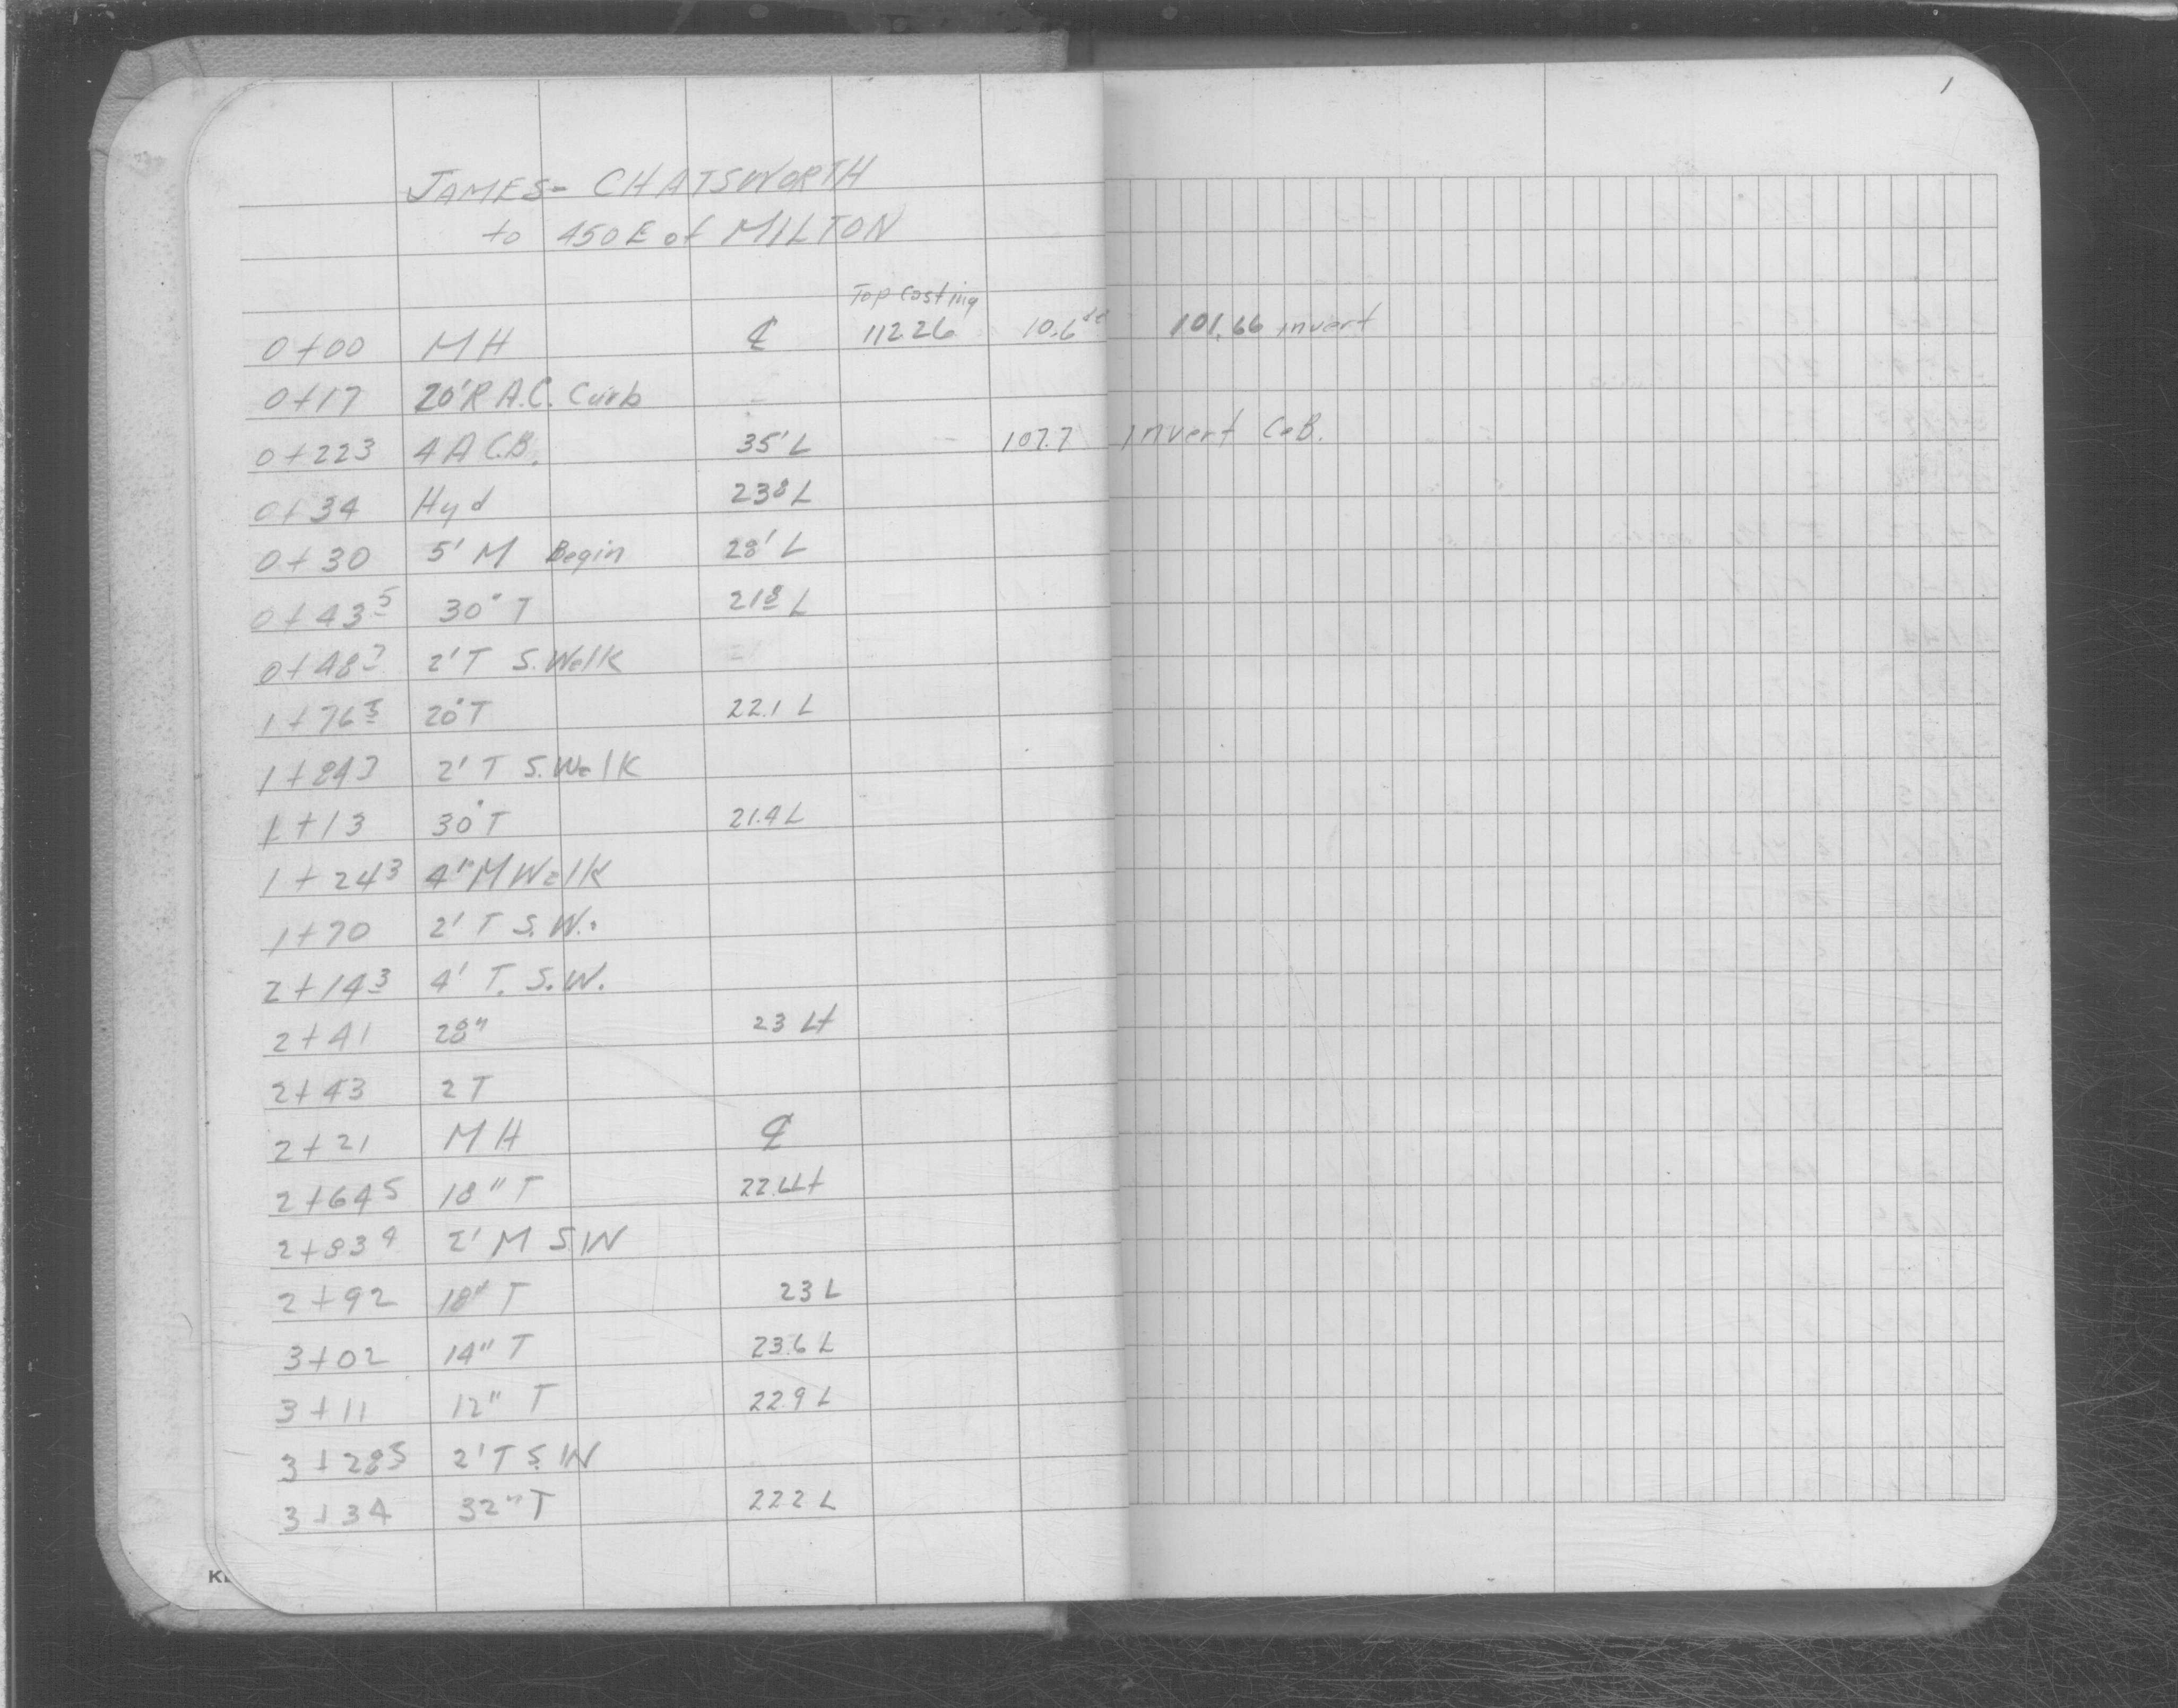 1
JAMES - CHATSWORTH
to 450 E of MILTON
Top Casting
0+00 MH ℄ 112.26 10.6 101.66 invert
0+17 20'R A.C. Curb -
0+223 4 A C.B. 35' L - 107.7 invert C.B.
0+34 Hyd 238 L
0+30 5' M Begin 28' L
0+435 30" T 218 L
0+487 2' T S. Walk
1+765 20" T 22.1 L
1+843 2' T S. Walk
1+13 30" T 21.4 L
1+243 4" M Walk
1+70 2' T S. W.
2+143 4' T. S. W.
2+41 28" 23 Lt
2+43 2 T
2+21 MH ℄
2+645 18" T 22.6 Lt
2+834 2' M S.W
2+92 18" T 23 L
3+02 14" T 23.6 L
3+11 12" T 22.9 L
3+285 2' T S. W
3+34 32" T 222 L